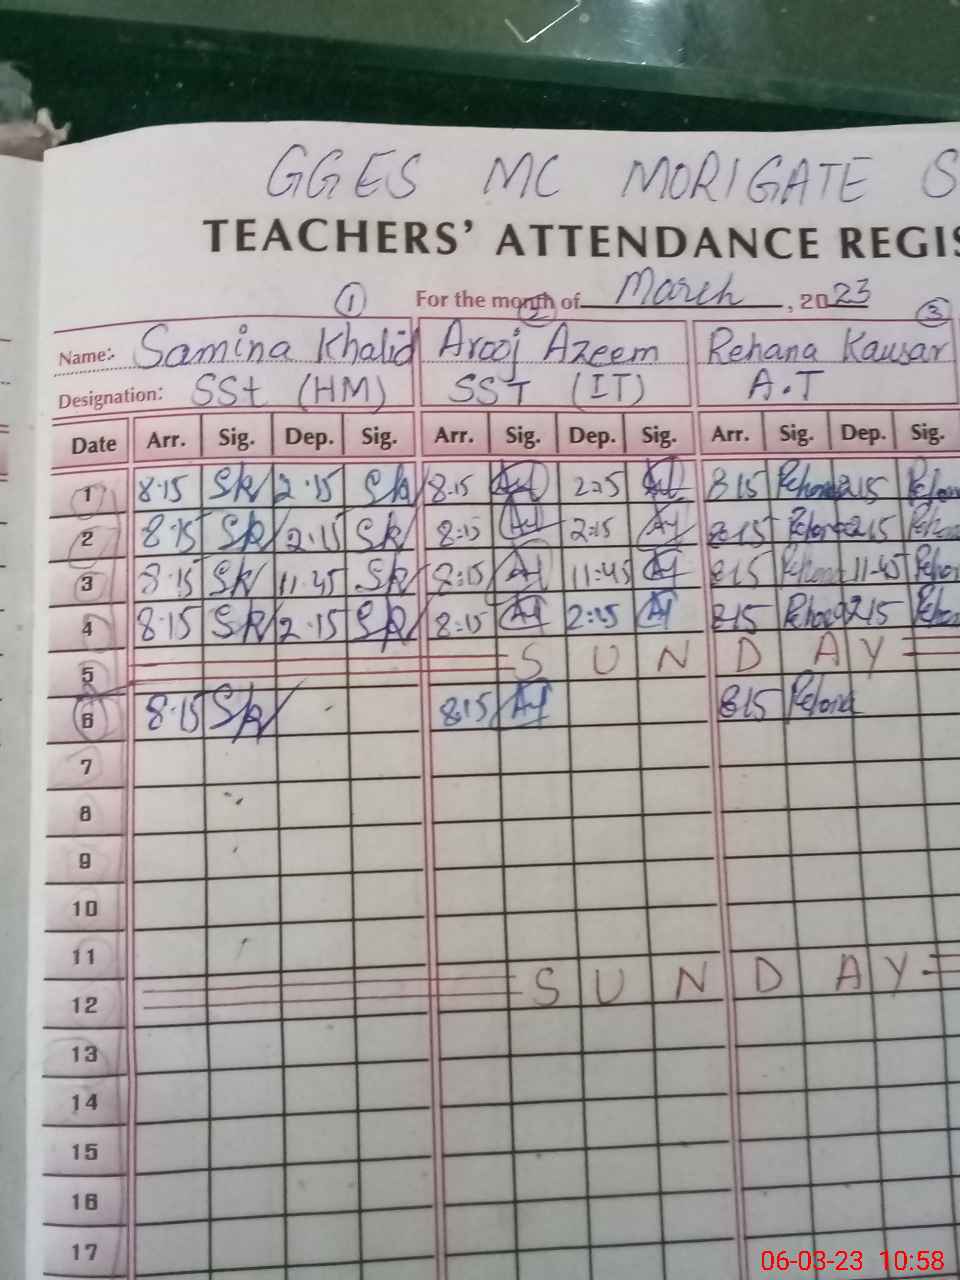 GGES MC MORIGATE S
TEACHERS' ATTENDANCE REGIS
① For the month of March, 2023
② ③
Name:- Samina Khalid Arooj Azeem Rehana Kausar
Designation: SSt (HM) SST (IT) A.T
Date Arr. Sig. Dep. Sig. Arr. Sig. Dep. Sig. Arr. Sig. Dep. Sig.
1 8.15 SK 2.15 SK 8.15 2:15 815 Rehana 215 Rehana
2 8:15 SK 2.15 SK 8:15 2:15 8:15 Rehana 215 Rehana
3 8:15 SK 11.45 SK 8:15 11:45 815 Rehana 11-45 Rehana
4 8.15 SK 2.15 SK 8:15 2:15 815 Rehana 215 Rehana
5 SUNDAY
6 8.15 SK 8.15 815 Rehana
7
8
9
10
11
12 SUNDAY
13
14
15
16
17
06-03-23 10:58